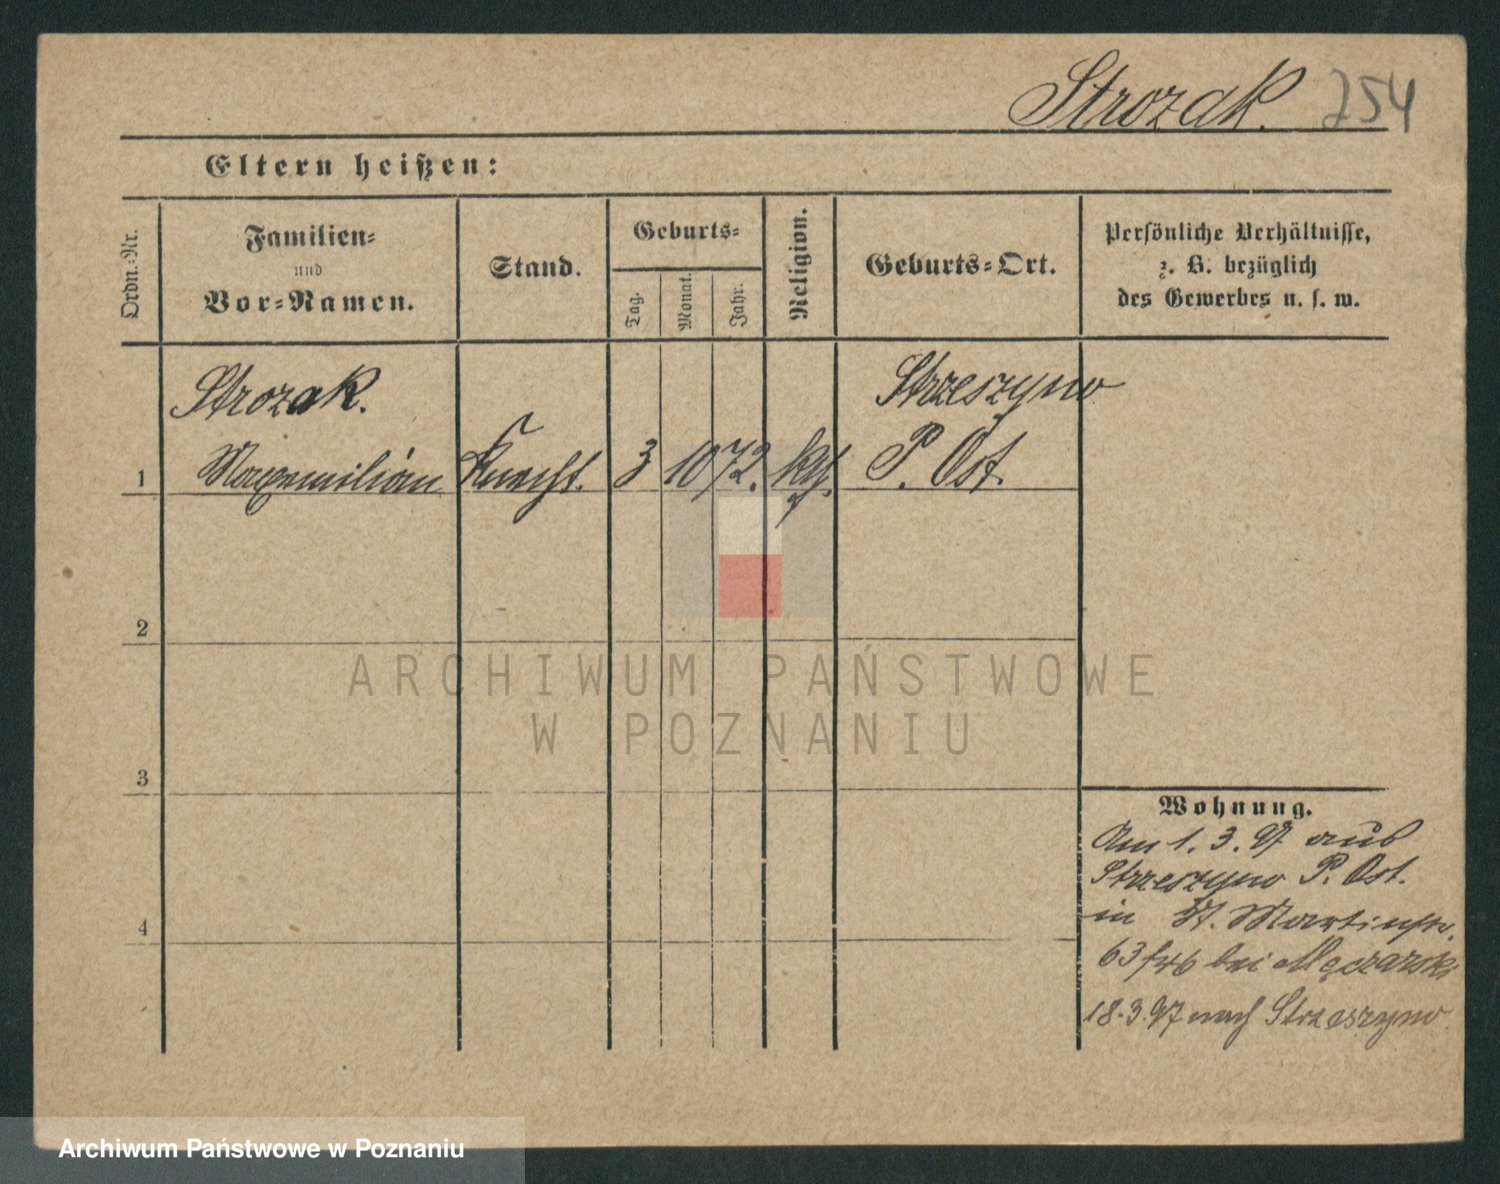 Strozak. 254
Eltern heißen:
Ordn.-Nr.
Familien-
und
Vor-Namen.
Stand.
Geburts-
Tag.
Monat.
Jahr.
Religion.
Geburts-Ort.
Persönliche Verhältnisse,
z. B. bezüglich
des Gewerbes u. s. w.
Strozak.
Strzeszyno
1 Maxemilian Knecht. 3 10 72. kth. P. Ost.
2
ARCHIWUM PAŃSTWOWE
W POZNANIU
3
Wohnung.
Am 1. 3. 97 aus
Strzeszyno P. Ost.
4
in St. Martinstr.
63/46 bei Męczarski
18.3.97 nach Strzeszyno
Archiwum Państwowe w Poznaniu